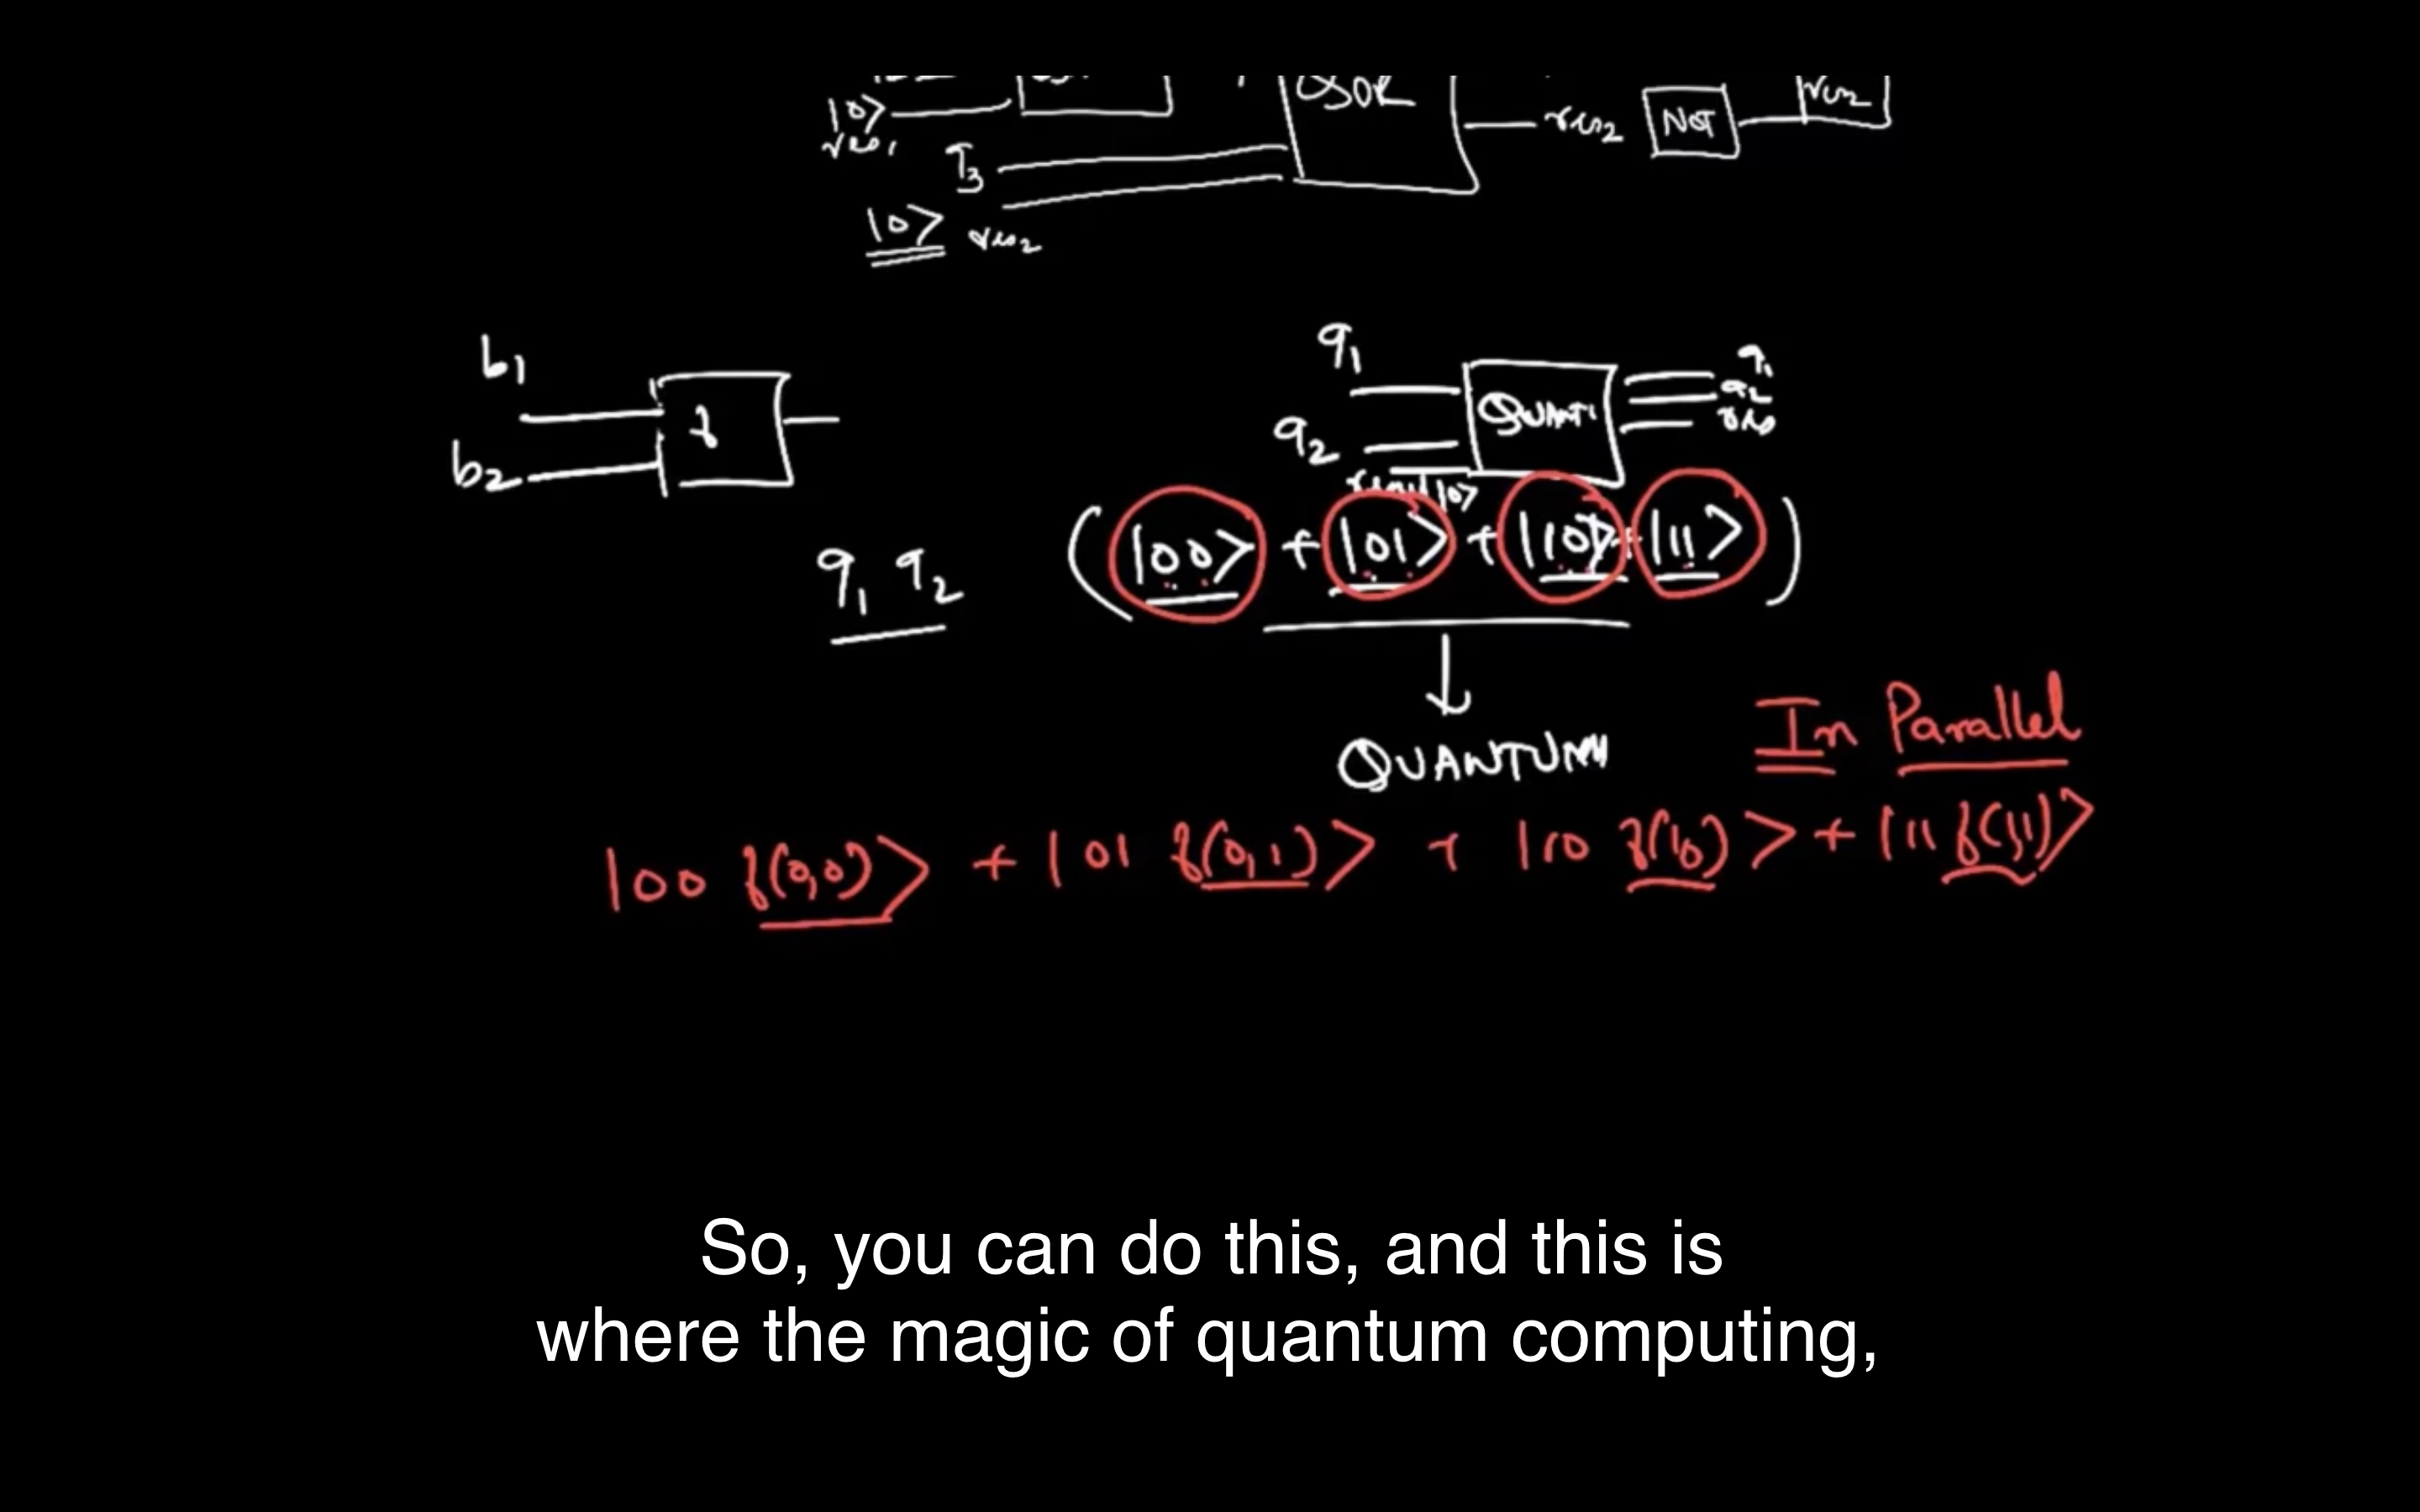 |0⟩
res₁
q₃
QOR
res₂
NOT
res₂
|0⟩ res₂
b₁
b₂
f
q₁
q₂
QUANT
q₁
q₂
res
|0⟩
q₁ q₂ (|00⟩ + |01⟩ + |10⟩ + |11⟩)
QUANTUM
In Parallel
|00 f(0,0)⟩ + |01 f(0,1)⟩ + |10 f(10)⟩ + |11 f(11)⟩
So, you can do this, and this is
where the magic of quantum computing,